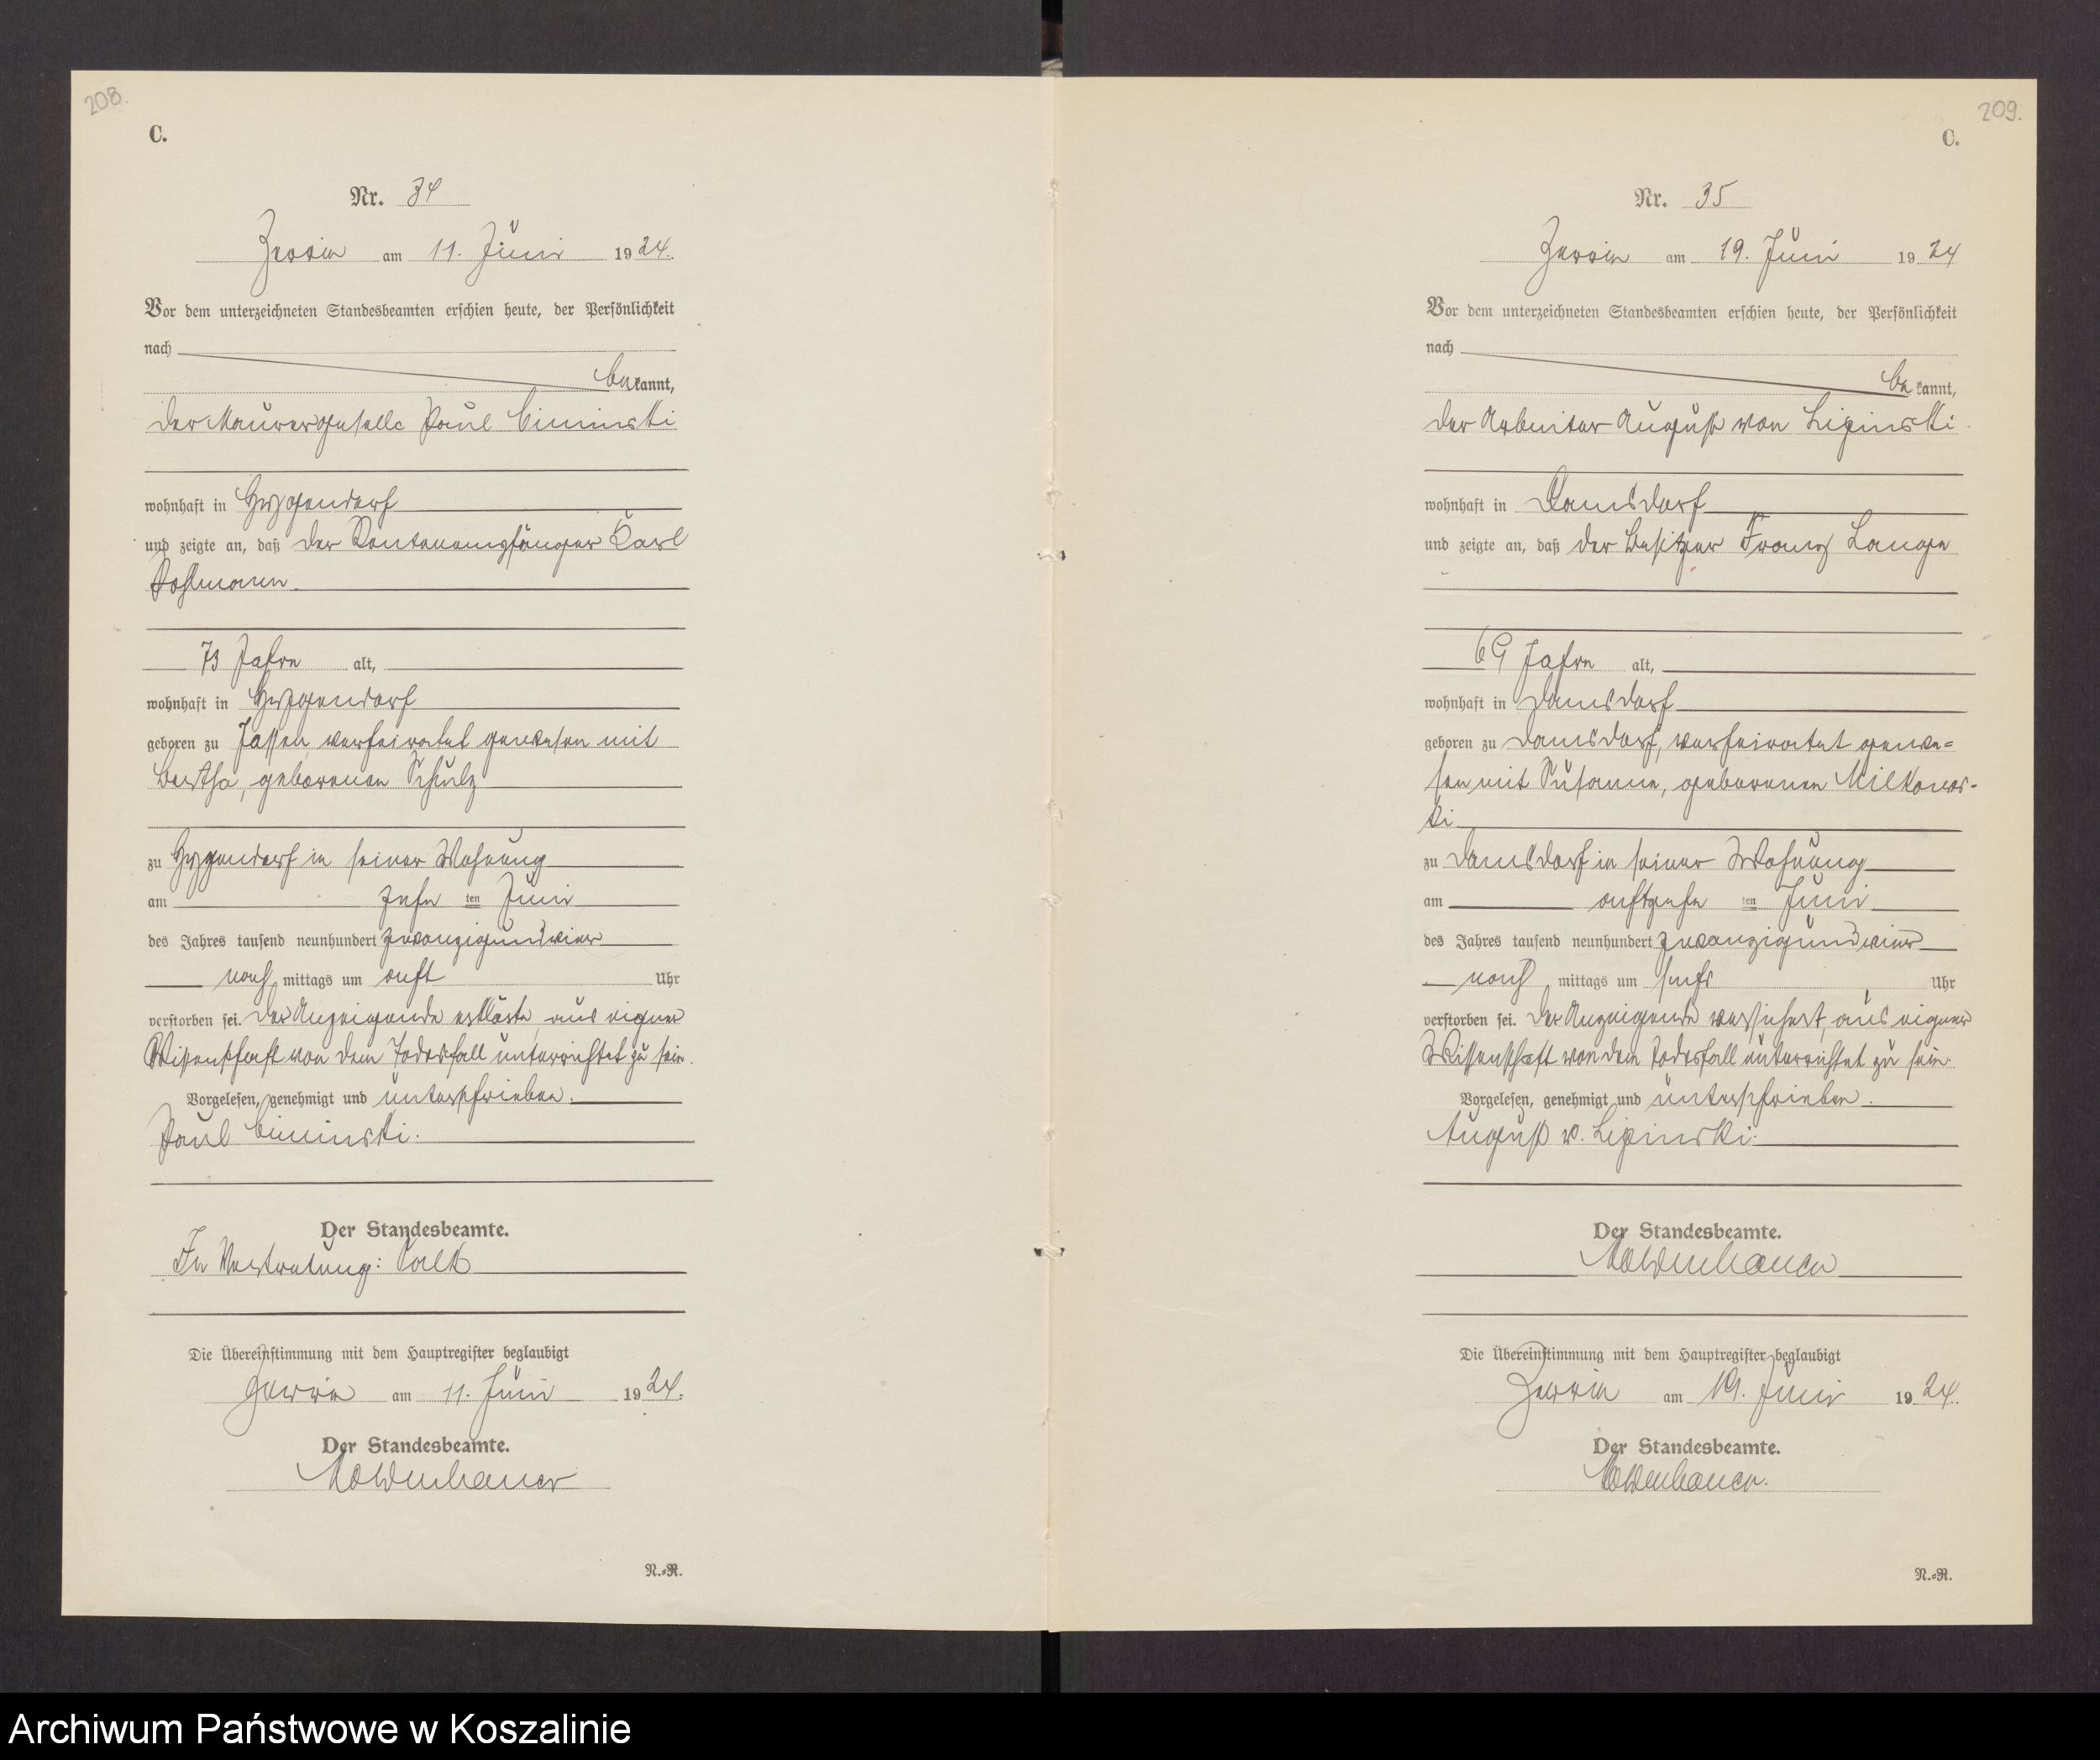 208.
C.
Nr. 34
Zerrin am 11. Juni 1924.
Vor dem unterzeichneten Standesbeamten erschien heute, der Persönlichkeit
nach
bekannt,
der Maurergeselle Paul Ciminski
wohnhaft in Hygendorf
und zeigte an, daß der Rentenempfänger Karl
Pohlmann
73 Jahre alt,
wohnhaft in Hygendorf
geboren zu Jassen, verheiratet gewesen mit
Bertha, geborenen Schulz
zu Hygendorf in seiner Wohnung
am zehnten Juni
des Jahres tausend neunhundert zwanzigundvier
nachmittags um acht Uhr
verstorben sei. Der Anzeigende erklärte, aus eigner
Wissenschaft von dem Todesfall unterrichtet zu sein.
Vorgelesen, genehmigt und unterschrieben.
Paul Ciminski.
Der Standesbeamte.
In Vertretung:
Die Übereinstimmung mit dem Hauptregister beglaubigt
Zerrin am 11. Juni 1924.
Der Standesbeamte.
Moldenhauer
N.=R.
209.
C.
Nr. 35
Zerrin am 19. Juni 1924
Vor dem unterzeichneten Standesbeamten erschien heute, der Persönlichkeit
nach
bekannt,
der Arbeiter August von Lipinski
wohnhaft in Damsdorf
und zeigte an, daß der Besitzer Franz Lange
69 Jahre alt,
wohnhaft in Damsdorf
geboren zu Damsdorf, verheiratet gewe=
sen mit Susanne, geborenen Milkows-
ki
zu Damsdorf in seiner Wohnung
am achtzehnten Juni
des Jahres tausend neunhundert zwanzigundvier
nachmittags um sechs Uhr
verstorben sei. Der Anzeigende versichert, aus eigner
Wissenschaft von dem Todesfall unterrichtet zu sein.
Vorgelesen, genehmigt und unterschrieben.
August v. Lipinski.
Der Standesbeamte.
Moldenhauer
Die Übereinstimmung mit dem Hauptregister beglaubigt
Zerrin am 19. Juni 1924.
Der Standesbeamte.
Moldenhauer.
N.=R.
Archiwum Państwowe w Koszalinie